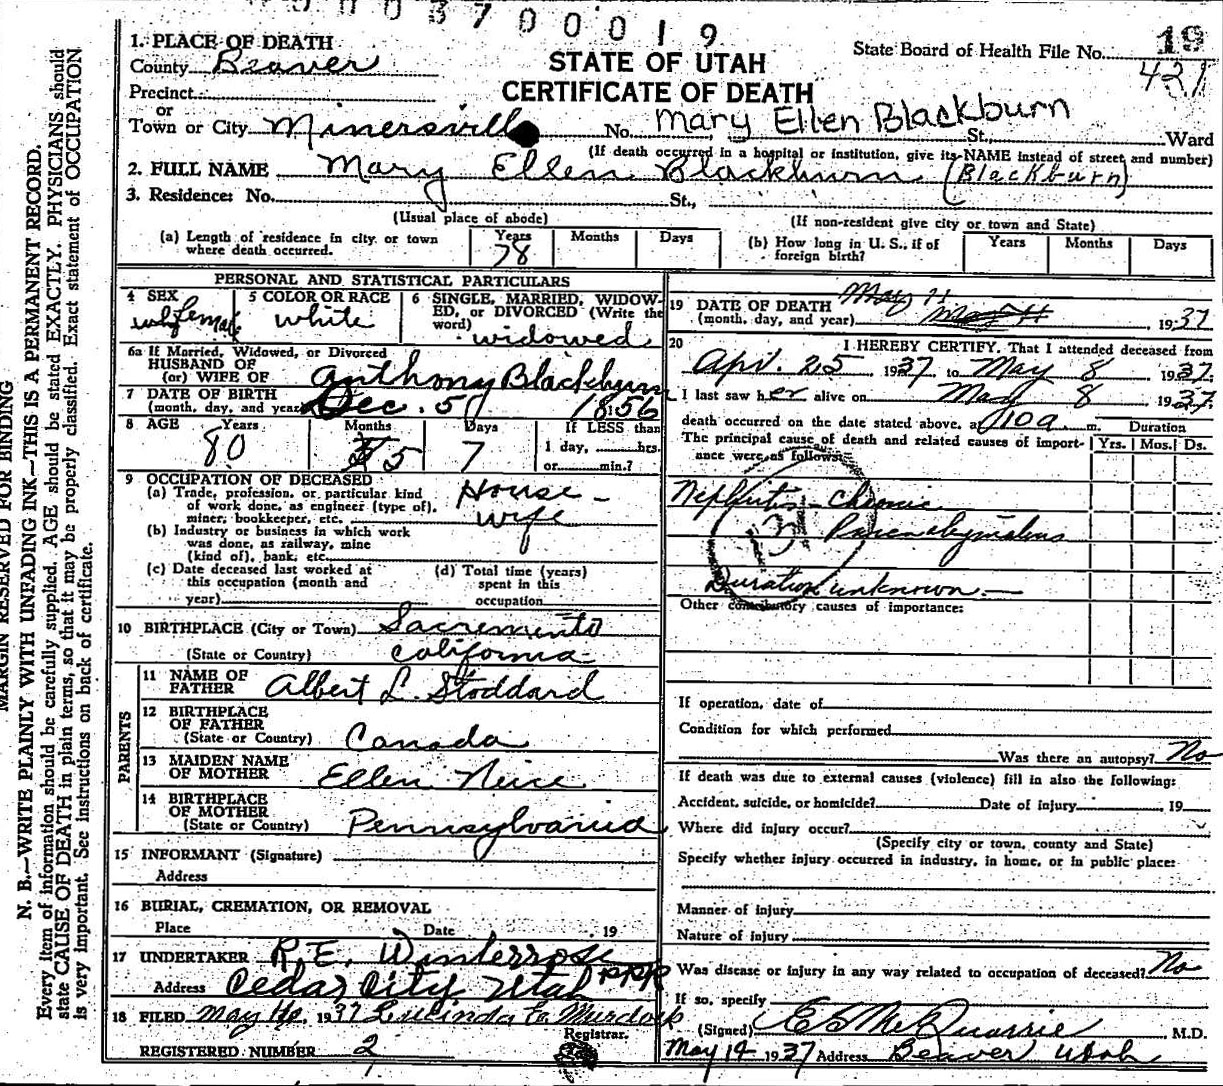 0003700019
1. PLACE OF DEATH
County Beaver
Precinct
or
Town or City Minersville
STATE OF UTAH
CERTIFICATE OF DEATH
State Board of Health File No. 19
421
No. Mary Ellen Blackburn St., Ward
(If death occurred in a hospital or institution, give its NAME instead of street and number)
2. FULL NAME Mary Ellen Blackburn (Blackburn)
3. Residence: No. St.,
(Usual place of abode) (If non-resident give city or town and State)
(a) Length of residence in city or town where death occurred. Years 78 Months Days
(b) How long in U. S., if of foreign birth? Years Months Days
PERSONAL AND STATISTICAL PARTICULARS
4 SEX female
5 COLOR OR RACE white
6 SINGLE, MARRIED, WIDOWED, or DIVORCED (Write the word) widowed
6a If Married, Widowed, or Divorced
HUSBAND OF
(or) WIFE OF Anthony Blackburn
7 DATE OF BIRTH
(month, day, and year) Dec. 5 1856
8 AGE Years 80 Months 5 Days 7 If LESS than
1 day, hrs.
or min.?
9 OCCUPATION OF DECEASED
(a) Trade, profession, or particular kind of work done, as engineer (type of), miner, bookkeeper, etc. House-wife
(b) Industry or business in which work was done, as railway, mine (kind of), bank, etc.
(c) Date deceased last worked at this occupation (month and year)
(d) Total time (years) spent in this occupation
10 BIRTHPLACE (City or Town) Sacramento
(State or Country) California
PARENTS
11 NAME OF FATHER Albert L. Stoddard
12 BIRTHPLACE OF FATHER
(State or Country) Canada
13 MAIDEN NAME OF MOTHER Ellen
14 BIRTHPLACE OF MOTHER
(State or Country) Pennsylvania
15 INFORMANT (Signature)
Address
16 BURIAL, CREMATION, OR REMOVAL
Place Date 19
17 UNDERTAKER R. E. Winterrose
Address Cedar City Utah
18 FILED May 1937 Lucinda Murdock
Registrar.
REGISTERED NUMBER 2
19 DATE OF DEATH May 11
(month, day, and year) May 11, 1937
20 I HEREBY CERTIFY, That I attended deceased from
Apr. 25 1937 to May 8 1937.
I last saw her alive on May 8 1937.
death occurred on the date stated above, at 10 a m. Duration
The principal cause of death and related causes of importance were as follows: Yrs. Mos. Ds.
Nephritis - Chronic
Parenchymatous
131
Duration unknown.
Other contributory causes of importance:
If operation, date of
Condition for which performed
Was there an autopsy? No
If death was due to external causes (violence) fill in also the following:
Accident, suicide, or homicide? Date of injury , 19
Where did injury occur?
(Specify city or town, county and State)
Specify whether injury occurred in industry, in home, or in public place:
Manner of injury
Nature of injury
Was disease or injury in any way related to occupation of deceased? No
If so, specify
(Signed) E S McQuarrie M.D.
May 14 1937 Address Beaver Utah
MARGIN RESERVED FOR BINDING
N. B.—WRITE PLAINLY WITH UNFADING INK—THIS IS A PERMANENT RECORD.
Every item of information should be carefully supplied. AGE should be stated EXACTLY. PHYSICIANS should
state CAUSE OF DEATH in plain terms, so that it may be properly classified. Exact statement of OCCUPATION
is very important. See instructions on back of certificate.